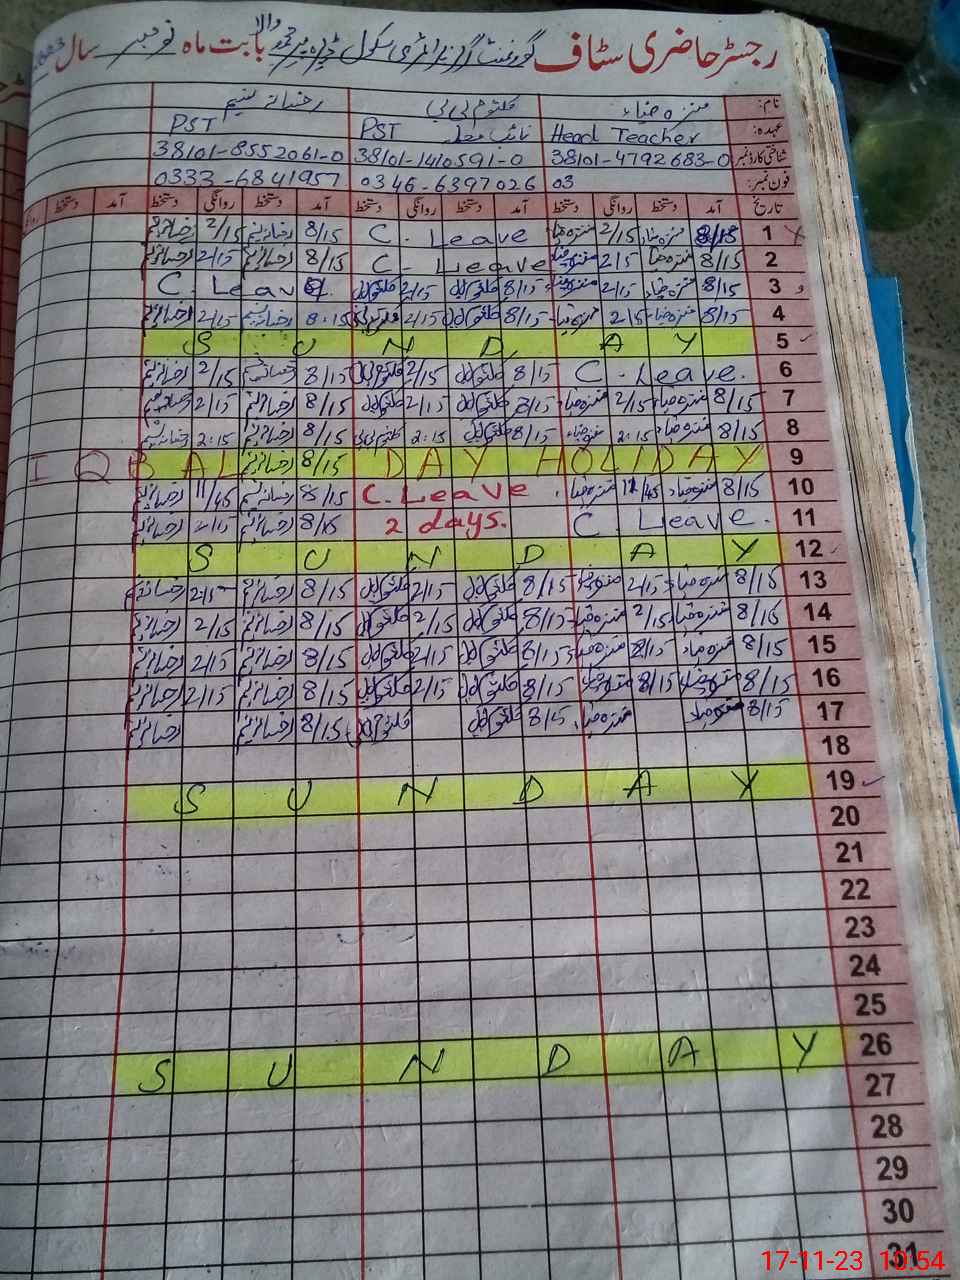 رجسٹر حاضری سٹاف گورنمنٹ گرلز پرائمری سکول ڈیرہ پیر محمود والا بابت ماہ نومبر سال 2023
نام: منزہ ضیاء کلثوم بی بی رخسانہ نسیم
عہدہ: Head Teacher نائب معلمہ PST PST
شناختی کارڈ نمبر 38101-4792683-0 38101-1410591-0 38101-8552061-0
فون نمبر: 03 0346-6397026 0333-6841957
تاریخ آمد دستخط روانگی دستخط آمد دستخط روانگی دستخط آمد دستخط روانگی دستخط آمد دستخط
1 8/15 منزہ ضیاء 2/15 منزہ ضیاء C. Leave 8/15 رخسانہ نسیم 2/15 رخسانہ نسیم
2 8/15 منزہ ضیاء 2/15 منزہ ضیاء C. Leave 8/15 رخسانہ نسیم 2/15 رخسانہ نسیم
3 8/15 منزہ ضیاء 2/15 منزہ ضیاء 8/15 کلثوم بی بی 2/15 کلثوم بی بی C. Leave
4 8/15 منزہ ضیاء 2/15 منزہ ضیاء 8/15 کلثوم بی بی 2/15 کلثوم بی بی 8:15 رخسانہ نسیم 2/15 رخسانہ نسیم
5 S U N D A Y
6 C. Leave. 8/15 کلثوم بی بی 2/15 کلثوم بی بی 8/15 رخسانہ نسیم 2/15 رخسانہ نسیم
7 8/15 منزہ ضیاء 2/15 منزہ ضیاء 8/15 کلثوم بی بی 2/15 کلثوم بی بی 8/15 رخسانہ نسیم 2/15 رخسانہ نسیم
8 8/15 منزہ ضیاء 2:15 منزہ ضیاء 8/15 کلثوم بی بی 2:15 کلثوم بی بی 8/15 رخسانہ نسیم 2:15 رخسانہ نسیم
9 I Q B A L 8/15 رخسانہ نسیم D A Y H O L I D A Y
10 8/15 منزہ ضیاء 11/45 منزہ ضیاء C. Leave 8/15 رخسانہ نسیم 11/45 رخسانہ نسیم
11 C. Leave. 2 days. 8/15 رخسانہ نسیم 2/15 رخسانہ نسیم
12 S U N D A Y
13 8/15 منزہ ضیاء 2/15 منزہ ضیاء 8/15 کلثوم بی بی 2/15 کلثوم بی بی 8/15 رخسانہ نسیم 2/15 رخسانہ نسیم
14 8/15 منزہ ضیاء 2/15 منزہ ضیاء 8/15 کلثوم بی بی 2/15 کلثوم بی بی 8/15 رخسانہ نسیم 2/15 رخسانہ نسیم
15 8/15 منزہ ضیاء 2/15 منزہ ضیاء 8/15 کلثوم بی بی 2/15 کلثوم بی بی 8/15 رخسانہ نسیم 2/15 رخسانہ نسیم
16 8/15 منزہ ضیاء 8/15 منزہ ضیاء 8/15 کلثوم بی بی 2/15 کلثوم بی بی 8/15 رخسانہ نسیم 2/15 رخسانہ نسیم
17 8/15 منزہ ضیاء منزہ ضیاء 8/15 کلثوم بی بی کلثوم بی بی 8/15 رخسانہ نسیم رخسانہ نسیم
18
19 S U N D A Y
20
21
22
23
24
25
26 S U N D A Y
27
28
29
30
31
17-11-23 10:54